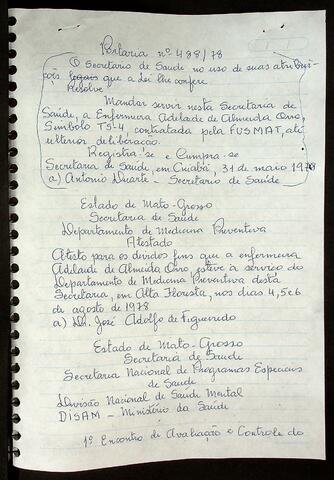 Portaria nº 488/78
O Secretario de Saude no uso de suas atribui-
ções legais que a Lei lhe confere
Resolve
Mandar servir nesta Secretaria de
Saúde, a Enfermeira Adelaide de Almeida Orro,
Símbolo TS-4, contratada pela FUSMAT, até
ulterior deliberação.
Registra-se e Cumpra-se
Secretaria de Saúde, em Cuiabá, 31 de maio 1978
a) Antonio Duarte - Secretario de Saúde
Estado de Mato-Grosso
Secretaria de Saude
Departamento de Medicina Preventiva
Atestado
Atesto para os devidos fins que a enfermeira
Adelaide de Almeida Orro, esteve a serviço do
Departamento de Medicina Preventiva desta
Secretaria, em Alta Floresta, nos dias 4, 5 e 6
de agosto de 1978
a) Dr. José Adolfo de Figueiredo
Estado de Mato-Grosso
Secretaria de Saude
Secretaria Nacional de Programas Especiais
de Saude
Divisão Nacional de Saúde Mental
DISAM - Ministério da Saúde
1º Encontro de Avaliação e Controle do